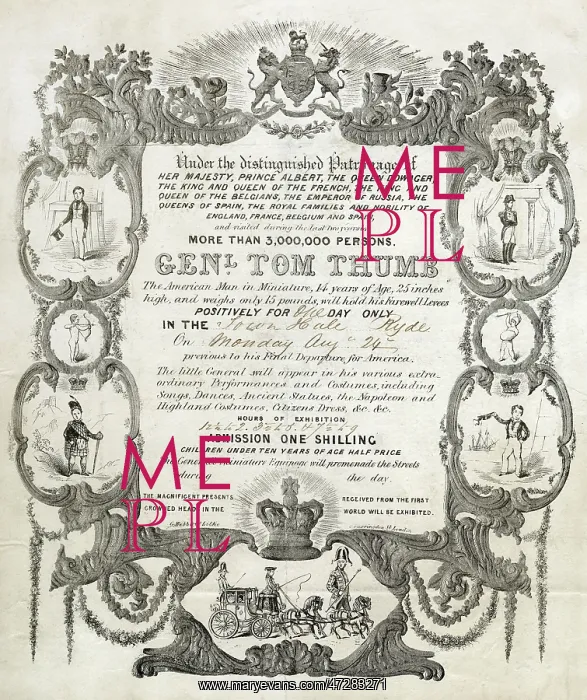 Under the distinguished Patronage of
HER MAJESTY, PRINCE ALBERT, THE QUEEN DOWAGER,
THE KING AND QUEEN OF THE FRENCH, THE KING AND
QUEEN OF THE BELGIANS, THE EMPEROR OF RUSSIA, THE
QUEENS OF SPAIN, THE ROYAL FAMILIES AND NOBILITY OF
ENGLAND, FRANCE, BELGIUM AND SPAIN,
and visited during the last two years by
MORE THAN 3,000,000 PERSONS.
GENL TOM THUMB
The American Man in Miniature, 14 years of Age, 25 inches
high, and weighs only 15 pounds, will hold his Farewell Levees
POSITIVELY FOR One DAY ONLY
IN THE Town Hall Ryde
On Monday Aug 24th
previous to his Final Departure for America.
The little General will appear in his various extra-
ordinary Performances and Costumes, including
Songs, Dances, Ancient Statues, the Napoleon and
Highland Costumes, Citizens Dress, &c. &c.
HOURS OF EXHIBITION
ADMISSION ONE SHILLING
CHILDREN UNDER TEN YEARS OF AGE HALF PRICE
The General's miniature Equipage will promenade the Streets
during the day.
THE MAGNIFICENT PRESENTS RECEIVED FROM THE FIRST
CROWNED HEAD IN THE WORLD WILL BE EXHIBITED.
ME
PL
ME
PL
www.maryevans.com/47283271